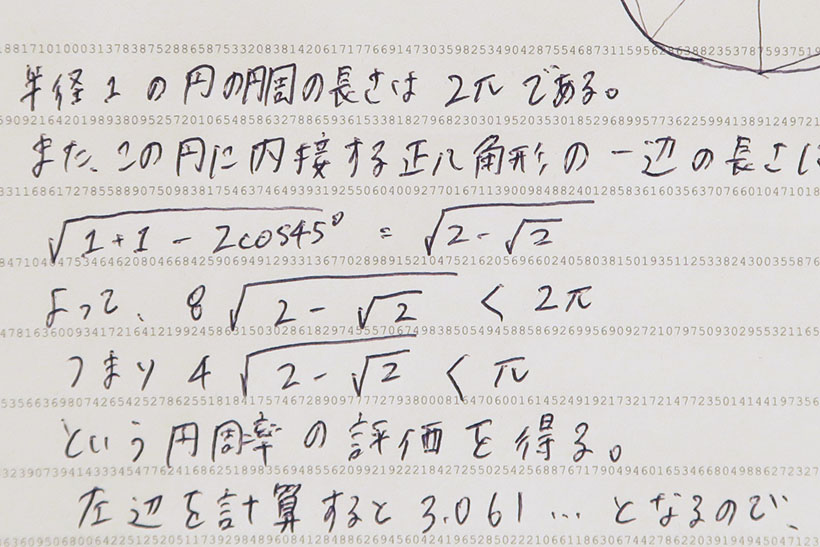 88171010003137838752886587533208381420617177669147303598253490428755468731159562863882353787593751 9
半径1の円の円周の長さは 2πである。
590921642019893809525720106548586327886593615338182796823030195203530185296899577362259941389124972 1
また、この円に内接する正八角形の一辺の長さは
33116861727855889075098381754637464939319255060400927701671139009848824012858361603563707660104710 18
√1+1-2cos45° = √2-√2
84710404753464620804668425906949129331367702898915210475216205696602405803815019351125338243003558 76
よって、 8√2-√2 < 2π
4781636009341721641219924586315030286182974555706749838505494588586926995690927210797509302955321165
つまり 4√2-√2 < π
535663698074265425278625518184175746728909777727938000816470600161452491921732172147723501414419735 6
という円周率の評価を得る。
3239073941433354577624168625189835694855620992192221842725502542568876717904946016534668049886272327
左辺を計算すると 3.061…となるので、
6360950680064225125205117392984896084128488626945604241965285022210661186306744278622039194945047123